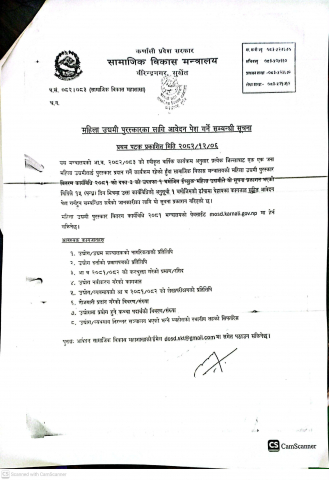 कर्णाली प्रदेश सरकार
सामाजिक विकास मन्त्रालय
वीरेन्द्रनगर, सुर्खेत
प.सं. ०८२/०८३ (सामाजिक विकास महाशाखा)
च.नं.
महिला उद्यमी पुरस्कारका लागि आवेदन पेश गर्ने सम्बन्धी सूचना
प्रथम पटक प्रकाशित मिति २०८२/१२/०६
यस मन्त्रालयको आ.व. २०८२/०८३ को स्वीकृत वार्षिक कार्यक्रम अनुसार प्रत्येक जिल्लाबाट एक एक जना
महिला उद्यमीलाई पुरस्कार प्रदान गर्ने कार्यक्रम रहेको हुँदा सामाजिक विकास मन्त्रालयको महिला उद्यमी पुरस्कार
वितरण कार्यविधि २०८१ को दफा
मितिले १५ (पन्ध्र) दिन भित्रमा उक्त कार्यविधिको अनुसूची १ बमोजिमको ढाँचामा देहायका कागजात सहित आवेदन
पेश गर्नुहुन सम्बन्धित सबैको जानकारीका लागि यो सूचना प्रकाशन गरिएको छ।
महिला उद्यमी पुरस्कार वितरण कार्यविधि २०८१ मन्त्रालयको वेबसाईट mosd.karnali.gov.np मा हेर्न
सकिनेछ।
आवश्यक कागजातहरु
१. उद्योग/फर्म सञ्चालकको नागरिकताको प्रतिलिपि
२. उद्योग दर्ताको प्रमाणपत्रको प्रतिलिपि
३. आ व २०८१/०८२ को करचुक्ता गरेको प्रमाण/रसिद
४. उद्योग नवीकरण गरेको कागजात
५. उद्योग/व्यवसायको आ व २०८१/०८२ को लेखापरीक्षणको प्रतिलिपि
६. रोजगारी प्रदान गरेको विवरण/संख्या
७. उद्योगमा प्रयोग हुने कच्चा पदार्थको विवरण/संख्या
८. उद्योग/व्यवसाय निरन्तर सञ्चालन भएको भन्ने व्यहोराको स्थानीय तहको सिफारिस
पुनश्च: आवेदन सामाजिक विकास महाशाखाकोईमेल dosd.skt@gmail.com मा समेत पठाउन सकिनेछ।
CS CamScanner
Scanned with CamScanner